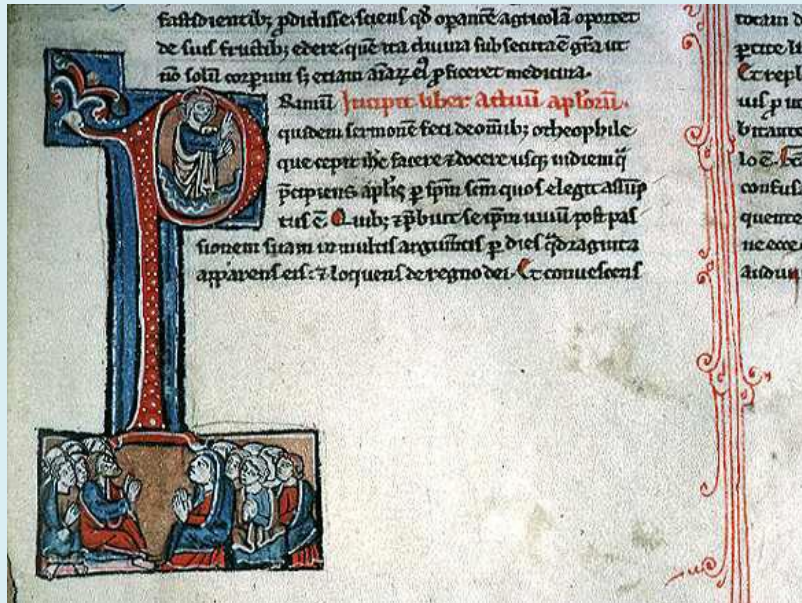 fastidientib; p̄didisse. sciens qđ opantē agricolā oportet
de suis fructib; edere. quē ita diuina subsecuta ē gr̄a ut
nō solū corporum sȝ etiam aīaȝ ei᷒ ꝓficeret medicina.
Rimū Incipit liber Actuū apl̓orū.
quidem sermonē feci de om̄ib; o theophile
que cepit ihc̄ facere ⁊ docere usq; in diem q̄
p̄cipiens apl̓is ꝑ sp̄m sc̄m quos elegit assūp
tus ē. Quib; ⁊ p̄buit se ip̄m uiuū post pas
sionem suam in multis argum̄tis ꝑ dies q̄draginta
apparens eis. ⁊ loquens de regno dei. Et conuescens
tocam d
Et repl
uis ꝑ
bitante
lo ē.
confus
quente
ne ecce